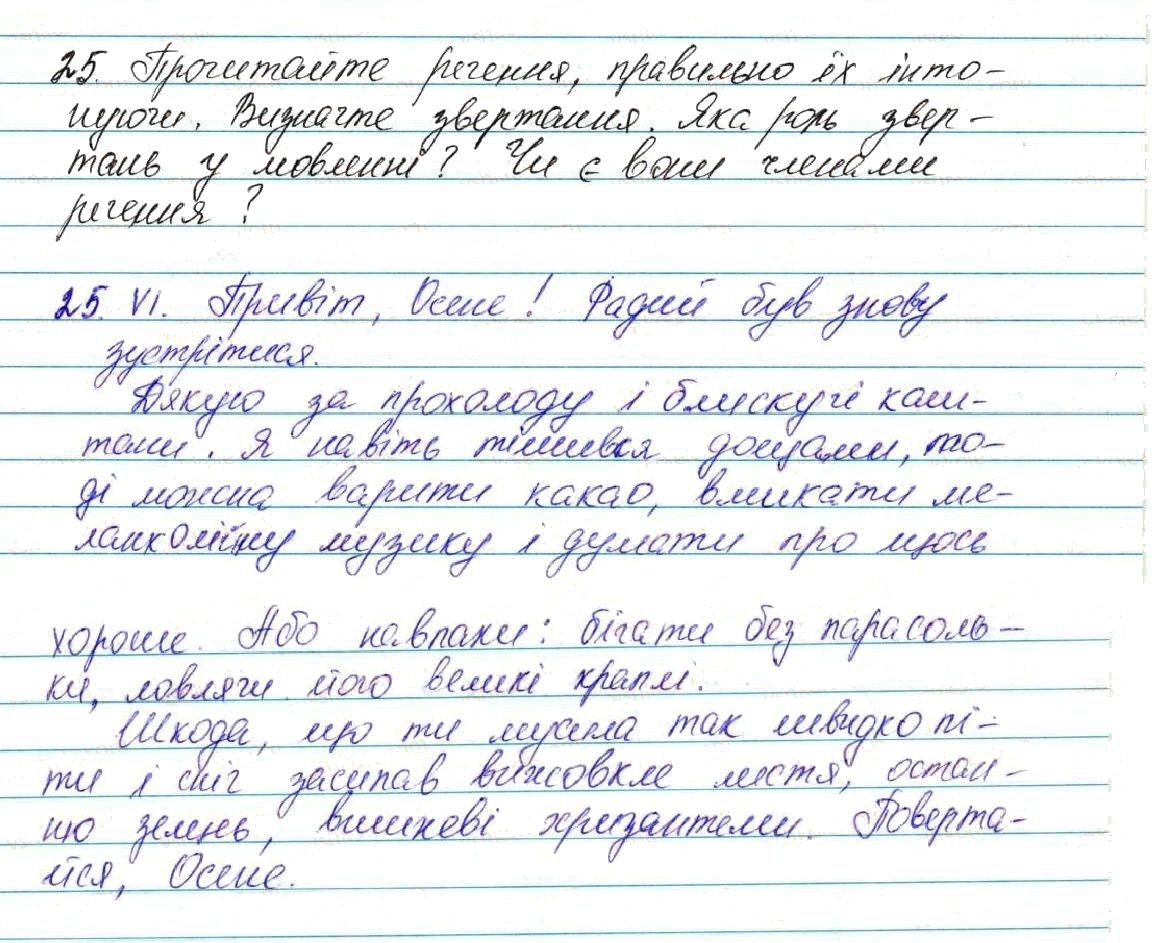 25. Прочитайте речення, правильно їх інто-
нуючи. Визначте звертання. Яка роль звер-
тань у мовленні? Чи є вони членами
речення?
25. VI. Привіт, Осене! Радий був знову
зустрітися.
Дякую за прохолоду і блискучі каш-
тани. Я навіть тішився дощами, то-
ді можна варити какао, вмикати ме-
ланхолійну музику і думати про щось
хороше. Або навпаки: бігати без парасоль-
ки, ловлячи його великі краплі.
Шкода, що ти мусила так швидко пі-
ти і сніг засипав вижовкле листя, остан-
ню зелень, вишневі хризантеми. Поверта-
йся, Осене.